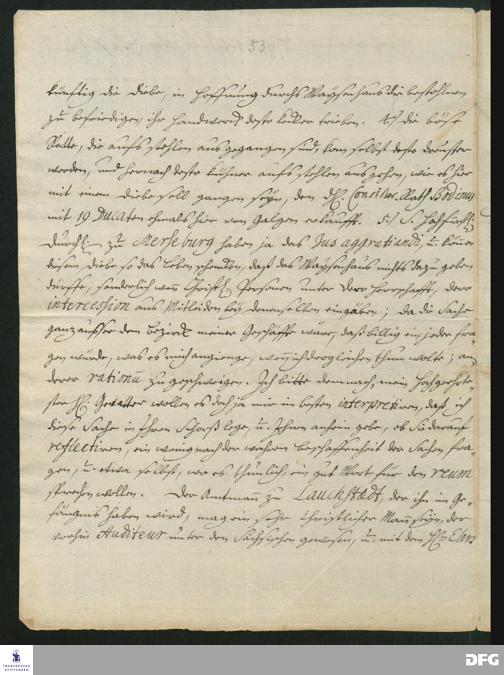 53
künftig die Diebe, in Hoffnung durchs Waysenhaus die bestohlnen
zu befriedigen, ihr Handwerck desto kecker trieben. 4.) die böse
Rotte, die aufs stehlen ausgegangen sind, kan selbst desto dreuster
werden, und hernach desto kühner aufs stehlen ausgehen, wie es hier
mit einem Diebe soll gangen seyn, den H. Consist. Rath Bodinus
mit 19 Ducaten ehmals hier vom Galgen erkaufft. 5.) S. Hochfürstl.
Durchl. zu Merseburg haben ja das Jus aggratiandi, u. können
diesem Diebe so das Leben schencken, daß das Waysenhaus nichts dazu geben
dürffte, sonderlich wenn Christl. Personen unter der Herrschafft, dero
intercession aus Mitleiden bey denenselben eingäben; da die Sache
ganz ausser dem Bezirck meiner Geschäffte wäre, daß billig ein jeder fra-
gen würde, was es mich angienge, wenn ich dergleichen thun wolte; an-
derer rationum zu geschweigen. Ich bitte demnach, mein Hochgeehrte-
ster H. Gevatter wollen es doch ja mir im besten interpretiren, daß ich
diese Sache in Ihren Schooß lege, u. Ihnen anheim gebe, ob Sie darauf
reflectiren, ein wenig nach der wahren beschaffenheit der Sachen fra-
gen, u. etwa selbst, wo es thunlich, ein gut Wort für den reum
sprechen wollen. Der Amtmann zu Lauchstädt, der ihn im Ge-
fängnis haben wird, mag ein sehr christlicher Mann seyn, der
vorhin Auditeur unter den Sächsischen gewesen, u. mit dem H. Elers
FRANCKESCHE
STIFTUNGEN
DFG